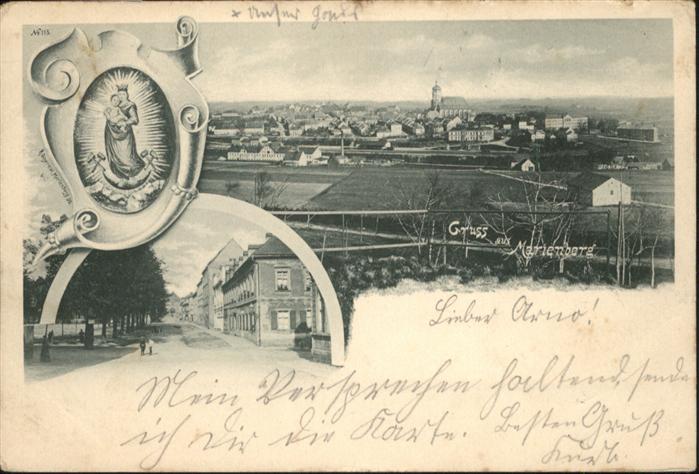 No 113.
* Unser
Gruss
aus
Marienberg
Lieber Arno!
Mein Versprechen haltend, sende
ich Dir die Karte. Besten Gruß
Kurt.